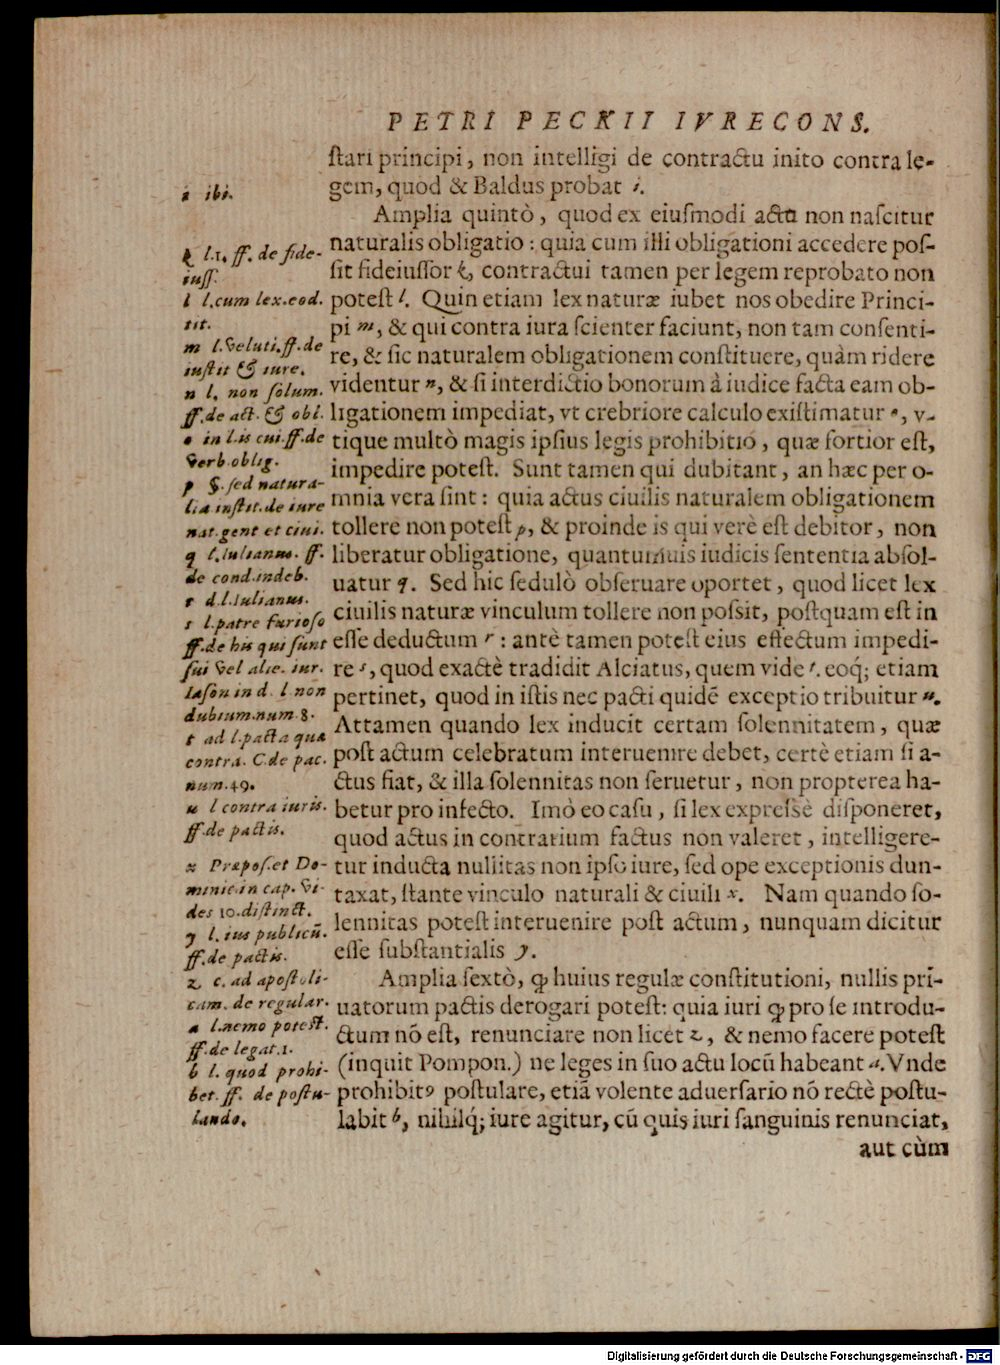 PETRI PECKII IVRECONS.
ſtari principi, non intelligi de contractu inito contra le-
gem, quod & Baldus probat i.
Amplia quintò, quod ex eiuſmodi actu non naſcitur
naturalis obligatio: quia cum illi obligationi accedere poſ-
ſit fideiuſſor k, contractui tamen per legem reprobato non
poteſt l. Quin etiam lex naturæ iubet nos obedire Princi-
pi m, & qui contra iura ſcienter faciunt, non tam conſenti-
re, & ſic naturalem obligationem conſtituere, quàm ridere
videntur n, & ſi interdictio bonorum à iudice facta eam ob-
ligationem impediat, vt crebriore calculo exiſtimatur o, v-
tique multò magis ipſius legis prohibitio, quæ fortior eſt,
impedire poteſt. Sunt tamen qui dubitant, an hæc per o-
mnia vera ſint: quia actus ciuilis naturalem obligationem
tollere non poteſt p, & proinde is qui verè eſt debitor, non
liberatur obligatione, quantumuis iudicis ſententia abſol-
uatur q. Sed hic ſedulò obſeruare oportet, quod licet lex
ciuilis naturæ vinculum tollere non poſsit, poſtquam eſt in
eſſe deductum r: antè tamen poteſt eius effectum impedi-
re s, quod exactè tradidit Alciatus, quem vide t. eoq́; etiam
pertinet, quod in iſtis nec pacti quidē exceptio tribuitur u.
Attamen quando lex inducit certam ſolennitatem, quæ
poſt actum celebratum interuenire debet, certè etiam ſi a-
ctus fiat, & illa ſolennitas non ſeruetur, non propterea ha-
betur pro infecto. Imò eo caſu, ſi lex expreſsè diſponeret,
quod actus in contrarium factus non valeret, intelligere-
tur inducta nullitas non ipſo iure, ſed ope exceptionis dun-
taxat, ſtante vinculo naturali & ciuili x. Nam quando ſo-
lennitas poteſt interuenire poſt actum, nunquam dicitur
eſſe ſubſtantialis y.
Amplia ſextò, ꝙ huius regulæ conſtitutioni, nullis pri-
uatorum pactis derogari poteſt: quia iuri ꝙ pro ſe introdu-
ctum nō eſt, renunciare non licet z, & nemo facere poteſt
(inquit Pompon.) ne leges in ſuo actu locū habeant a. Vnde
prohibitꝰ poſtulare, etiā volente aduerſario nō rectè poſtu-
labit b, nihilq́; iure agitur, cū quis iuri ſanguinis renunciat,
aut cùm
i ibi.
k l.1. ff. de fide-
iuſſ.
l l.cum lex.eod.
tit.
m l.veluti.ff.de
iuſtit & iure.
n l. non ſolum.
ff.de act. & obl.
o in l.is cui.ff.de
verb.oblig.
p §.ſed natura-
lia inſtit.de iure
nat.gent et ciui.
q l.iulianus. ff.
de cond.indeb.
r d.l.iulianus.
s l.patre furioſo
ff.de his qui ſunt
ſui vel alie. iur.
Iaſon in d. l non
dubium.num.8.
t ad l.pacta quæ
contra. C.de pac.
num.49.
u l contra iuris.
ff.de pactis.
x Præpoſ.et Do-
minic.in cap. vi-
des 10.diſtinct.
y l. ius publicū.
ff.de pactis.
z c. ad apoſtoli-
cam. de regular.
a l.nemo poteſt.
ff.de legat.1.
b l. quod prohi-
bet. ff. de poſtu-
lando.
Digitalisierung gefördert durch die Deutsche Forschungsgemeinschaft - DFG